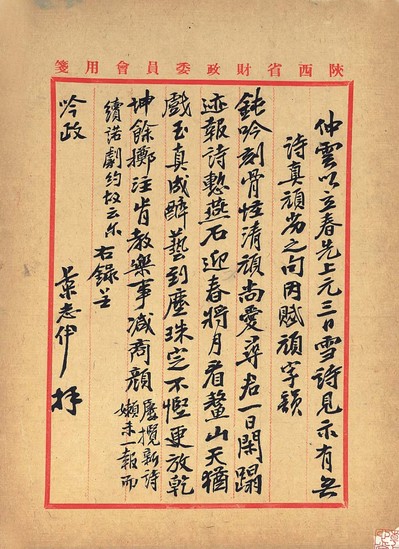 陝西省財政委員會用箋
仲雲以立春先上元三日雪詩見示有無
詩真頑劣之句因賦頑字韻
鈍吟刻骨怪清頑尚愛尋君一日閑蹋
迹報詩慙燕石迎春將月看鰲山天猶
戲玉真成醉藝到塵珠定不慳更放乾
坤餘擲肯教樂事減商顏
屢攬新詩
嬾未一報而
續諾劇約故云尔
右錄呈
吟政
葉志 拜